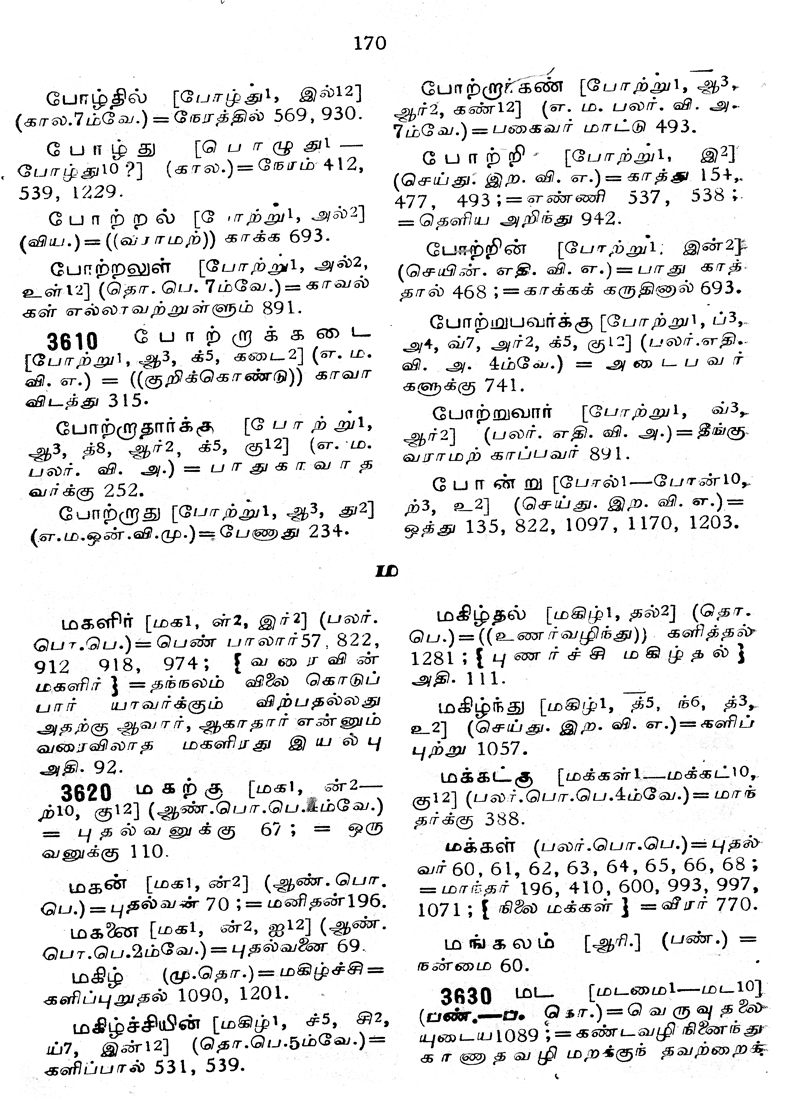 170
போழ்தில் [போழ்து1, இல்12]
(கால.7ம்வே.)=நேரத்தில் 569, 930.
போழ்து [பொழுது1—
போழ்து10 ?] (கால.)=நேரம் 412,
539, 1229.
போற்றல் [போற்று1, அல்2]
(விய.)=((வராமற்)) காக்க 693.
போற்றலுள் [போற்று1, அல்2,
உள்12] (தொ. பெ. 7ம்வே.)=காவல்
கள் எல்லாவற்றுள்ளும் 891.
3610 போற்றாக்கடை
[போற்று1, ஆ3, க்5, கடை2] (எ. ம.
வி. எ.) = ((குறிக்கொண்டு)) காவா
விடத்து 315.
போற்றாதார்க்கு [போற்று1,
ஆ3, த்8, ஆர்2, க்5, கு12] (எ. ம.
பலர். வி. அ.) = பாதுகாவாத
வர்க்கு 252.
போற்றாது [போற்று1, ஆ3, து2]
(எ.ம.ஒன்.வி.மு.)=பேணாது 234.
போற்றார்கண் [போற்று1, ஆ3,
ஆர்2, கண்12] (எ. ம. பலர். வி. அ.
7ம்வே.)=பகைவர் மாட்டு 493.
போற்றி [போற்று1, இ2]
(செய்து. இற. வி. எ.)=காத்து 154,
477, 493 ;=எண்ணி 537, 538 ;
=தெளிய அறிந்து 942.
போற்றின் [போற்று1, இன்2]
(செயின். எதி. வி. எ.)=பாது காத்
தால் 468 ;=காக்கக் கருதினால் 693.
போற்றுபவர்க்கு [போற்று1, ப்3,
அ4, வ்7, அர்2, க்5, கு12] (பலர்.எதி.
வி. அ. 4ம்வே.) = அடைபவர்
களுக்கு 741.
போற்றுவார் [போற்று1, வ்3,
ஆர்2] (பலர். எதி. வி. அ.)=தீங்கு
வராமற் காப்பவர் 891.
போன்று [போல்1—போன்10,
ற்3, உ2] (செய்து. இற. வி. எ.)=
ஒத்து 135, 822, 1097, 1170, 1203.
ம
மகளிர் [மக1, ள்2, இர்2] (பலர்.
பொ.பெ.)=பெண் பாலார்57, 822,
912 918, 974; {வரைவின்
மகளிர்} =தந்நலம் விலை கொடுப்
பார் யாவர்க்கும் விற்பதல்லது
அதற்கு ஆவார், ஆகாதார் என்னும்
வரைவிலாத மகளிரது இயல்பு
அதி. 92.
3620 மகற்கு [மக1, ன்2—
ற்10, கு12] (ஆண்.பொ.பெ.4ம்வே.)
= புதல்வனுக்கு 67 ; = ஒரு
வனுக்கு 110.
மகன் [மக1, ன்2] (ஆண். பொ.
பெ.)=புதல்வன் 70 ;=மனிதன்196.
மகனை [மக1, ன்2, ஐ12] (ஆண்.
பொ.பெ.2ம்வே.)=புதல்வனை 69.
மகிழ் (மு.தொ.)=மகிழ்ச்சி=
களிப்புறுதல் 1090, 1201.
மகிழ்ச்சியின் [மகிழ்1, ச்5, சி2,
ய்7, இன்12] (தொ.பெ.5ம்வே.)=
களிப்பால் 531, 539.
மகிழ்தல் [மகிழ்1, தல்2] (தொ.
பெ.)=((உணர்வழிந்து)) களித்தல்
1281 ; {புணர்ச்சி மகிழ்தல்}
அதி. 111.
மகிழ்ந்து [மகிழ்1, த்5, ந்6, த்3,
உ2] (செய்து. இற. வி. எ.)=களிப்
புற்று 1057.
மக்கட்கு [மக்கள்1—மக்கட்10,
கு12] (பலர்.பொ.பெ.4ம்வே.)=மாந்
தர்க்கு 388.
மக்கள் (பலர்.பொ.பெ.)=புதல்
வர் 60, 61, 62, 63, 64, 65, 66, 68 ;
=மாந்தர் 196, 410, 600, 993, 997,
1071 ; {நிலை மக்கள்} =வீரர் 770.
மங்கலம் [ஆரி.] (பண்.) =
நன்மை 60.
3630 மட [மடமை1—மட10]
(பண்.—ப. கொ.)=வெருவுதலை
யுடைய1089 ;=கண்டவழி நினைந்து
காணாதவழி மறக்குந் தவற்றைக்